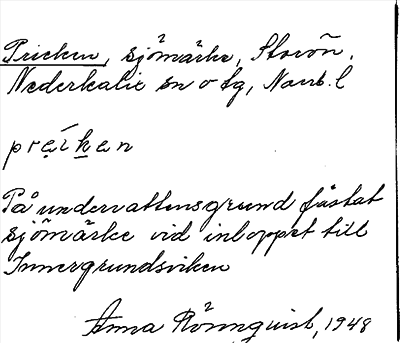 Pricken, sjömärke, Storön.
Nederkalix sn o tg, Norrb. l
prẹíḵẹn
På undervattensgrund fästat
sjömärke vid inloppet till
Innergrundsviken
Anna Rönnquist, 1948